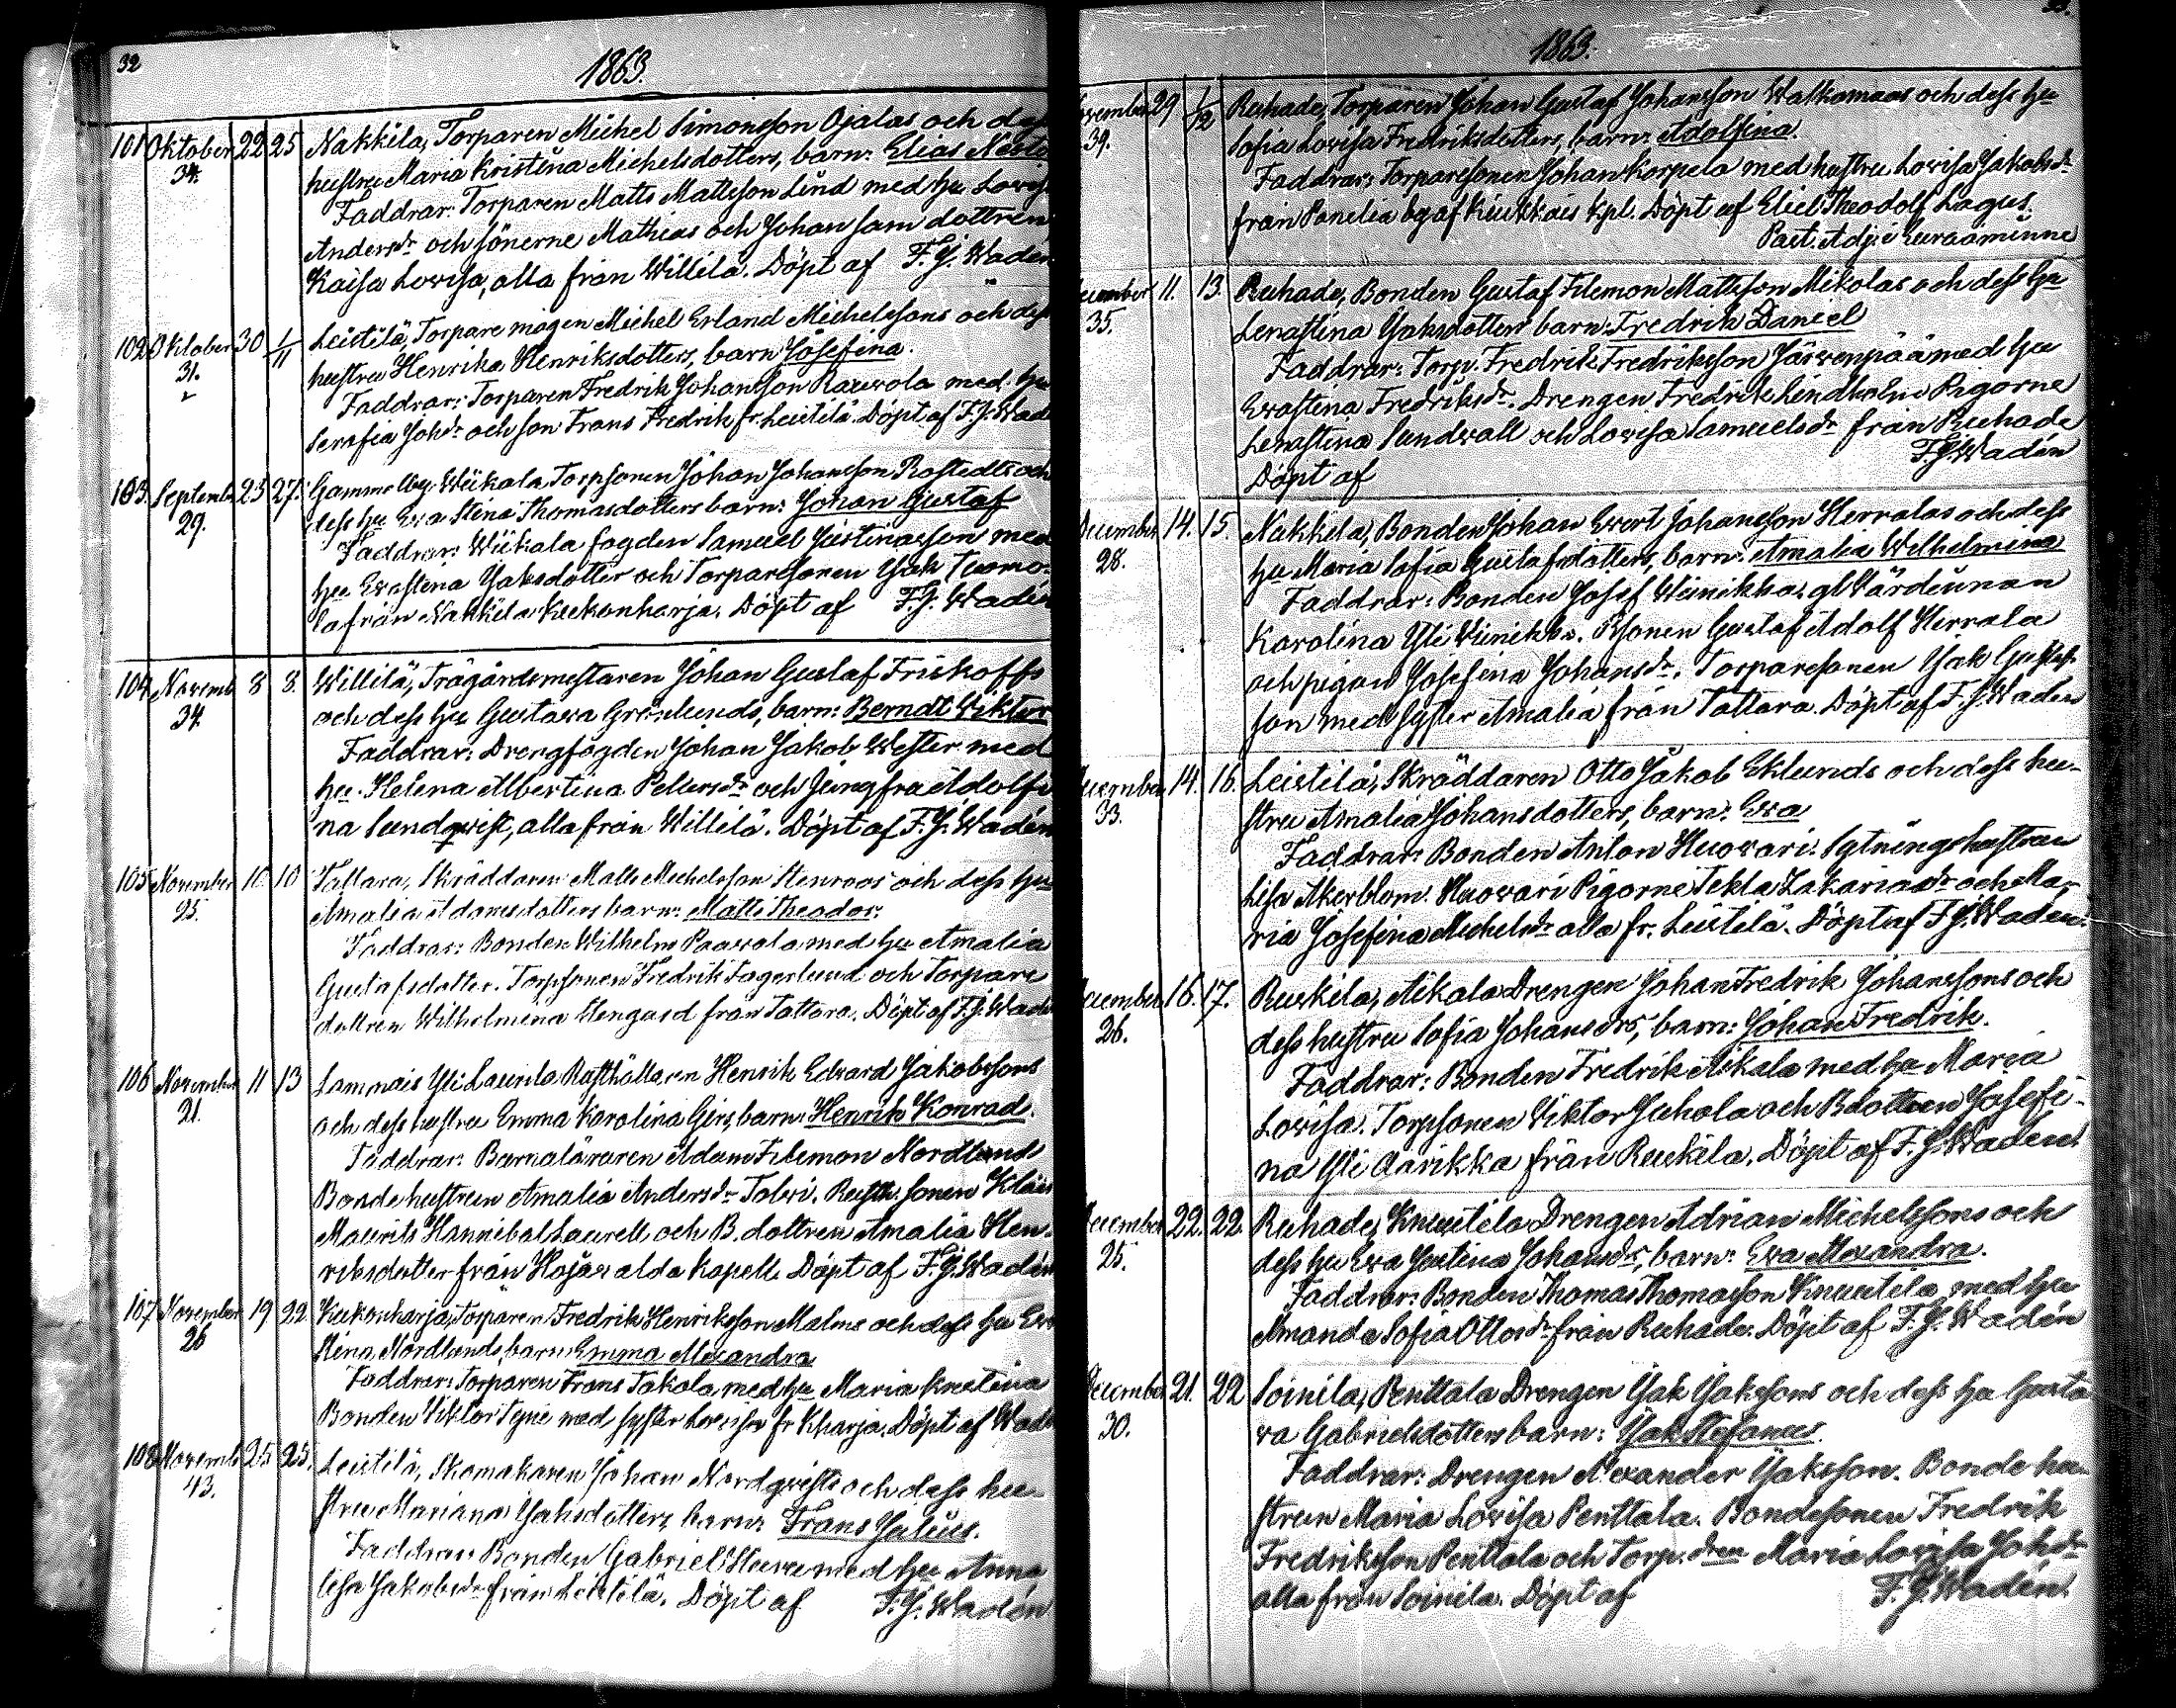 32
1863.
101 Oktober 22 25 Nakkila, Torparen Michel Simonsson Ojalas och dess
34. hustru Maria Kristina Michelsdotters, barn: Elias
Faddrar: Torparen Matts Mattsson Lind med hu Lovisa
Andersdr och sönerne Mathias och Johan sam dottren
Kaisa Lovisa, alla från Willilä. Döpt af F. J. Wadén
102 Oktober 30 1/11 Leistilä, Torpare mågen Michel Erland Michelssons och dess
31. hustru Henrika Henriksdotters, barn Josefina.
Faddrar: Torparen Fredrik Johansson Rauvola med hu
Serafia Johdr och son Frans Fredrik fr. Leistilä. Döpt af F. J. Wadén
103. Septemb 23 27. Gammelby Wiikala, Torpsonen Johan Johansson Rostedts och
29. dess hu Eva Stina Thomasdotters barn: Johan Gustaf
Faddrar: Wiikala fogden Samuel Justinasson med
hu Evastina Jaksdotter och Torparesonen Jak Tuomo-
la från Nakkila Kukonharja. Döpt af F. J. Wadén
104 Novemb 8 8. Willilä, Trägårdsmestaren Johan Gustaf Friskoffs
34. och dess hu Gustava Grönlunds, barn: Berndt Viktor
Faddrar: Drengfogden Johan Jakob Wester med
hu. Helena Albertina Petersdr och Jungfru Adolfi-
na Sundqvist, alla från Willilä. Döpt af F. J. Wadén
105 November 10 10 Tattara, Skräddaren Matts Michelsson Stenroos och dess hu
25. Amalia Adamsdotters barn: Matti Theodor.
Faddrar: Bonden Wilhelm Paavola med hu Amalia
Gustafsdotter. Torpsonen Fredrik Fagerlund och Torpare
dottren Wilhelmina Stengard från Tattara. Döpt af F. J. Wadén
106 November 11 13 Lammais Yli Laurila Rusthållaren Henrik Edvard Jakobssons
21. och dess hustru Emma Karolina Girs, barn: Henrik Konrad.
Faddrar: Barnaläraren Adam Filemon Nordlund
Bondehustrun Amalia Andersdr Talvi. Rusth. sonen Klaus
Maurits Hannibal Laurell och B. dottren Amalia Hen-
riksdotter från Harjavalda kapell. Döpt af F. J. Wadén
107 November 19 22 Kukonharja, Torparen Fredrik Henriksson Malms och dess hu Eva
26 Stina Nordlunds, barn: Emma Alexandra
Faddrar: Torparen Frans Takala med hu Maria Kristina
Bonden Viktor Tyni med syster Lovisa fr Kharja. Döpt af Wadén
108 Novemb 25 25. Leistilä, Skomakaren Johan Nordqvists och dess hu-
43. stru Mariana Jaksdotters, barn: Frans Julius.
Faddrar: Bonden Gabriel Huru med hu Anna
Lisa Jakobsdr från Leistilä. Döpt af F. J. Wadén
33.
1863.
November 29 1/12 Ruhade, Torparen Johan Gustaf Johansson Walkamaas och dess hu
39. Sofia Lovisa Fredriksdotters, barn: Adolfina.
Faddrar: Torparesonen Johan Korpela med hustru Lovisa Jakobsdr
från Panelia by af Kiukkais kpl. Döpt af Eliel Theodolf Lagus.
Past. Adj. i Euraåminne
December 11. 13. Ruhade, Bonden Gustaf Filemon Mattsson Mikolas och dess hu
35. Lenastina Jaksdotters barn: Fredrik Daniel
Faddrar: Torp. Fredrik Fredriksson Järvenpää med hu
Evastina Fredriksdr. Drengen Fredrik Lindholm Pigorne
Lenastina Sundvall och Lovisa Samuelsdr från Ruhade
Döpt af F. J. Wadén
December 14. 15. Nakkila, Bonden Johan Evert Johansson Herralas och dess
28. hu Maria Sofia Gustafsdotters, barn: Amalia Wilhelmina
Faddrar: Bonden Josef Wiinikka, gl Värdinnan
Karolina Yli Wiinikka. Bsonen Gustaf Adolf Herrala
och pigan Josefina Johansdr. Torparesonen Jak Gustafs-
son med syster Amalia från Tattara. Döpt af F. J. Wadén
December 14. 16. Leistilä, Skräddaren Otto Jakob Eklunds och dess hu-
33. stru Amalia Johansdotters, barn: Eva
Faddrar: Bonden Anton Huovari. Sytningshustrun
Lisa Åkerblom. Huovari Pigorne Tekla Zakariasdr och Ma-
ria Josefina Michelsdr alla fr. Leistilä. Döpt af F. J. Wadén.
December 16. 17. Ruskila, Aikala Drengen Johan Fredrik Johanssons och
26. dess hustru Sofia Johansdrs, barn: Johan Fredrik.
Faddrar: Bonden Fredrik Aikala med hu Maria
Lovisa. Torpsonen Viktor Juhola och Bdottren Josefi-
na Yli Aarikka från Ruskila. Döpt af F. J. Wadén.
December 22. 22. Ruhade, Knuutila Drengen Adrian Michelssons och
25. dess hu Eva Justina Johansdrs, barn: Eva Alexandra.
Faddrar: Bonden Thomas Thomasson Knuutila med hu
Amanda Sofia Ottosdr från Ruhade. Döpt af F. J. Wadén
December 21. 22 Soinila, Penttala Drengen Jak Jakssons och dess hu Gusta-
30. va Gabrielsdotters barn: Jak Stefanus.
Faddrar: Drengen Alexander Jaksson. Bonde hu-
strun Maria Lovisa Penttala. Bondesonen Fredrik
Fredriksson Penttala och Torp. dren Maria Lovisa Johsdr
alla från Soinila. Döpt af F. J. Wadén.